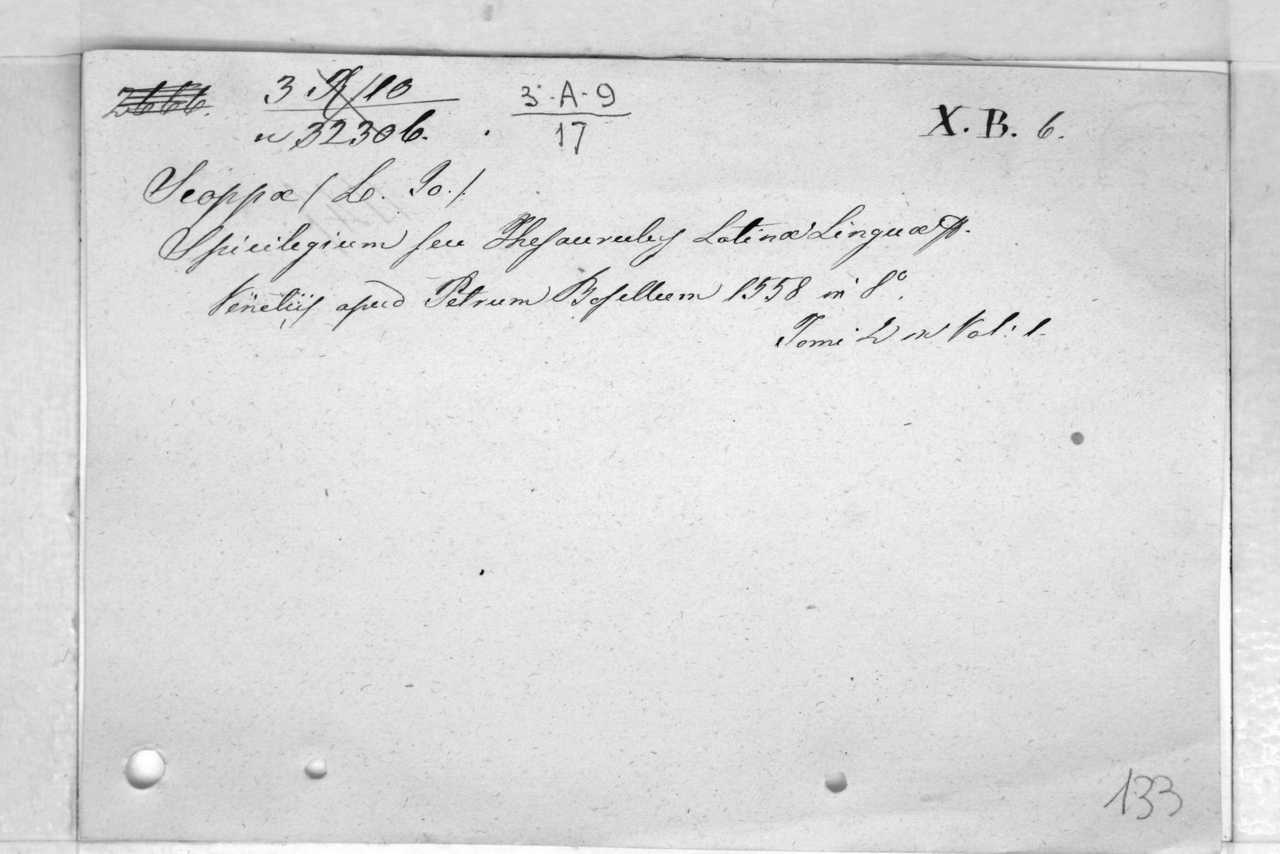 3 A/10 3·A·9 X. B. 6.
n 32306. 17
Scoppæ (L. Jo.)
Spicilegium seu Thesaurulus Latinæ Linguæ
Venetiis apud Petrum Bosellum 1558 in 8°.
Tomi 2 in Vol: 1.
133